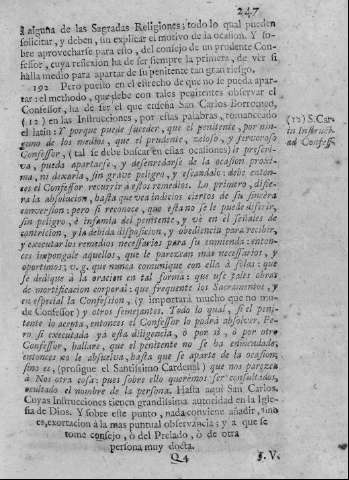 247
à alguna de las Sagradas Religiones; todo lo qual pueden
solicitar, y deben, sin explicar el motivo de la ocasion. Y so-
bre aprovecharse para esto, del consejo de un prudente Con-
fessor, cuya reflexion ha de ser siempre la primera, de ver si
halla medio para apartar de su penitente tan gran riesgo.
192 Pero puesto en el estrecho de que no le pueda apar-
tar: el methodo, que debe con tales penitentes observar el
Confessor, ha de ser el que enseña San Carlos Borromeo,
(12) en las Instrucciones, por estas palabras, romanceado
el latin: Y porque puede suceder, que el penitente, por nin-
guno de los medios, que el prudente, zeloso, y fervoroso
Confessor, (tal se debe buscar en estas ocasiones) le prescri-
va, pueda apartarse, y desenredarse de la ocasion proxi-
ma, ni dexarla, sin grave peligro, y escandalo: debe enton-
ces el Confessor recurrir à estos remedios. Lo primero, difie-
ra la absolucion, hasta que vea indicios ciertos de su sincera
conversion: pero si reconoce, que esta no se le puede diferir,
sin peligro, è infamia del penitente, y vè en èl señales de
contricion, y la debida disposicion, y obediencia para recibir,
y executar los remedios necessarios para su enmienda: enton-
ces impongale aquellos, que le parezcan mas necessarios, y
oportunos; v. g. que nunca comunique con ella à solas: que
se dedique à la oracion en tal forma: que use tales obras
de mortificacion corporal: que frequente los Sacramentos, y
en especial la Confession, (y importarà mucho que no mu-
de Confessor) y otros semejantes. Todo lo qual, si el peni-
tente lo acepta, entonces el Confessor lo podrà absolver. Pe-
ro, si executada ya esta diligencia, ò por sì, ò por otro
Confessor, hallare, que el penitente no se ha enmendado,
entonces no le absuelva, hasta que se aparte de la ocasion;
sino es, (prosigue el Santissimo Cardenal) que nos parezca
à Nos otra cosa: pues sobre ello queremos ser consultados,
ocultado el nombre de la persona. Hasta aqui San Carlos.
Cuyas Instrucciones tienen grandissima autoridad en la Igle-
sia de Dios. Y sobre este punto, nada conviene añadir, sino
es, exortacion à la mas puntual observancia; y a que se
tome consejo, ò del Prelado, ò de otra
persona muy docta.
Q4
§. V.
(12) S. Car-
in Instruct.
ad Confess.